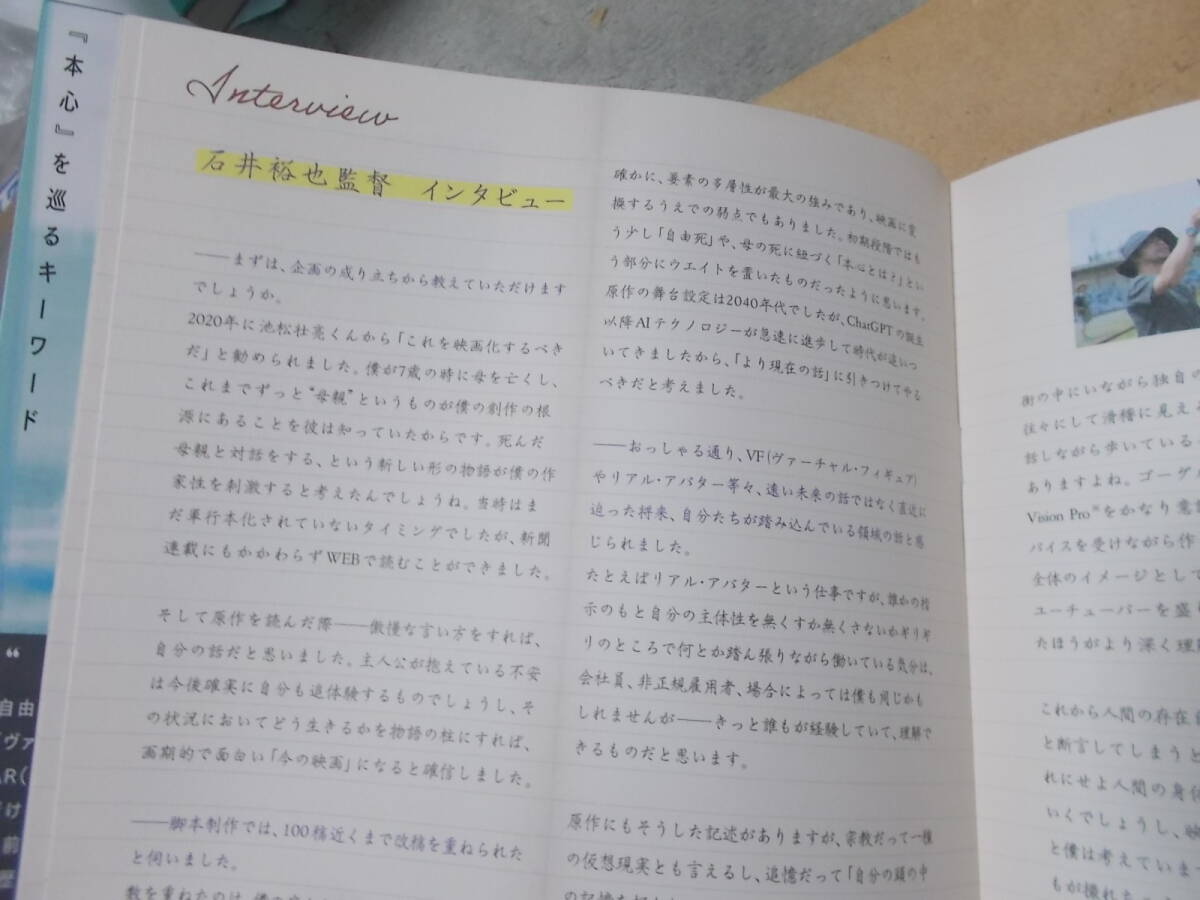 『本心』を巡るキーワード
“
自由
ヴァ
AR(
け
前
Interview
石井裕也監督　インタビュー
——まずは、企画の成り立ちから教えていただけます
でしょうか。
2020年に池松壮亮くんから「これを映画化するべき
だ」と勧められました。僕が7歳の時に母を亡くし、
これまでずっと“母親”というものが僕の創作の根
源にあることを彼は知っていたからです。死んだ
母親と対話をする、という新しい形の物語が僕の作
家性を刺激すると考えたんでしょうね。当時はま
だ単行本化されていないタイミングでしたが、新聞
連載にもかかわらずWEBで読むことができました。
そして原作を読んだ際——傲慢な言い方をすれば、
自分の話だと思いました。主人公が抱えている不安
は今後確実に自分も追体験するものでしょうし、そ
の状況においてどう生きるかを物語の柱にすれば、
画期的で面白い「今の映画」になると確信しました。
——脚本制作では、100稿近くまで改稿を重ねられた
と伺いました。
数を重ねたのは、僕の
確かに、要素の多層性が最大の強みであり、映画に変
換するうえでの弱点でもありました。初期段階ではも
う少し「自由死」や、母の死に紐づく「本心とは？」とい
う部分にウエイトを置いたものだったように思います。
原作の舞台設定は2040年代でしたが、ChatGPTの誕生
以降AIテクノロジーが急速に進歩して時代が追いつ
いてきましたから、「より現在の話」に引きつけてやる
べきだと考えました。
——おっしゃる通り、VF(ヴァーチャル・フィギュア)
やリアル・アバター等々、遠い未来の話ではなく直近に
迫った将来、自分たちが踏み込んでいる領域の話と感
じられました。
たとえばリアル・アバターという仕事ですが、誰かの指
示のもと自分の主体性を無くすか無くさないかギリギ
リのところで何とか踏ん張りながら働いている気分は、
会社員、非正規雇用者、場合によっては僕も同じかも
しれませんが——きっと誰もが経験していて、理解で
きるものだと思います。
原作にもそうした記述がありますが、宗教だって一種
の仮想現実とも言えるし、追憶だって「自分の頭の中
の記憶を
街の中にいながら独自の
往々にして滑稽に見え
話しながら歩いている
ありますよね。ゴーグ
Vision Pro※をかなり意
バイスを受けながら作
全体のイメージとして
ユーチューバーを盛
たほうがより深く理
これから人間の存在
と断言してしまうと
れにせよ人間の身
いくでしょうし、
と僕は考えていま